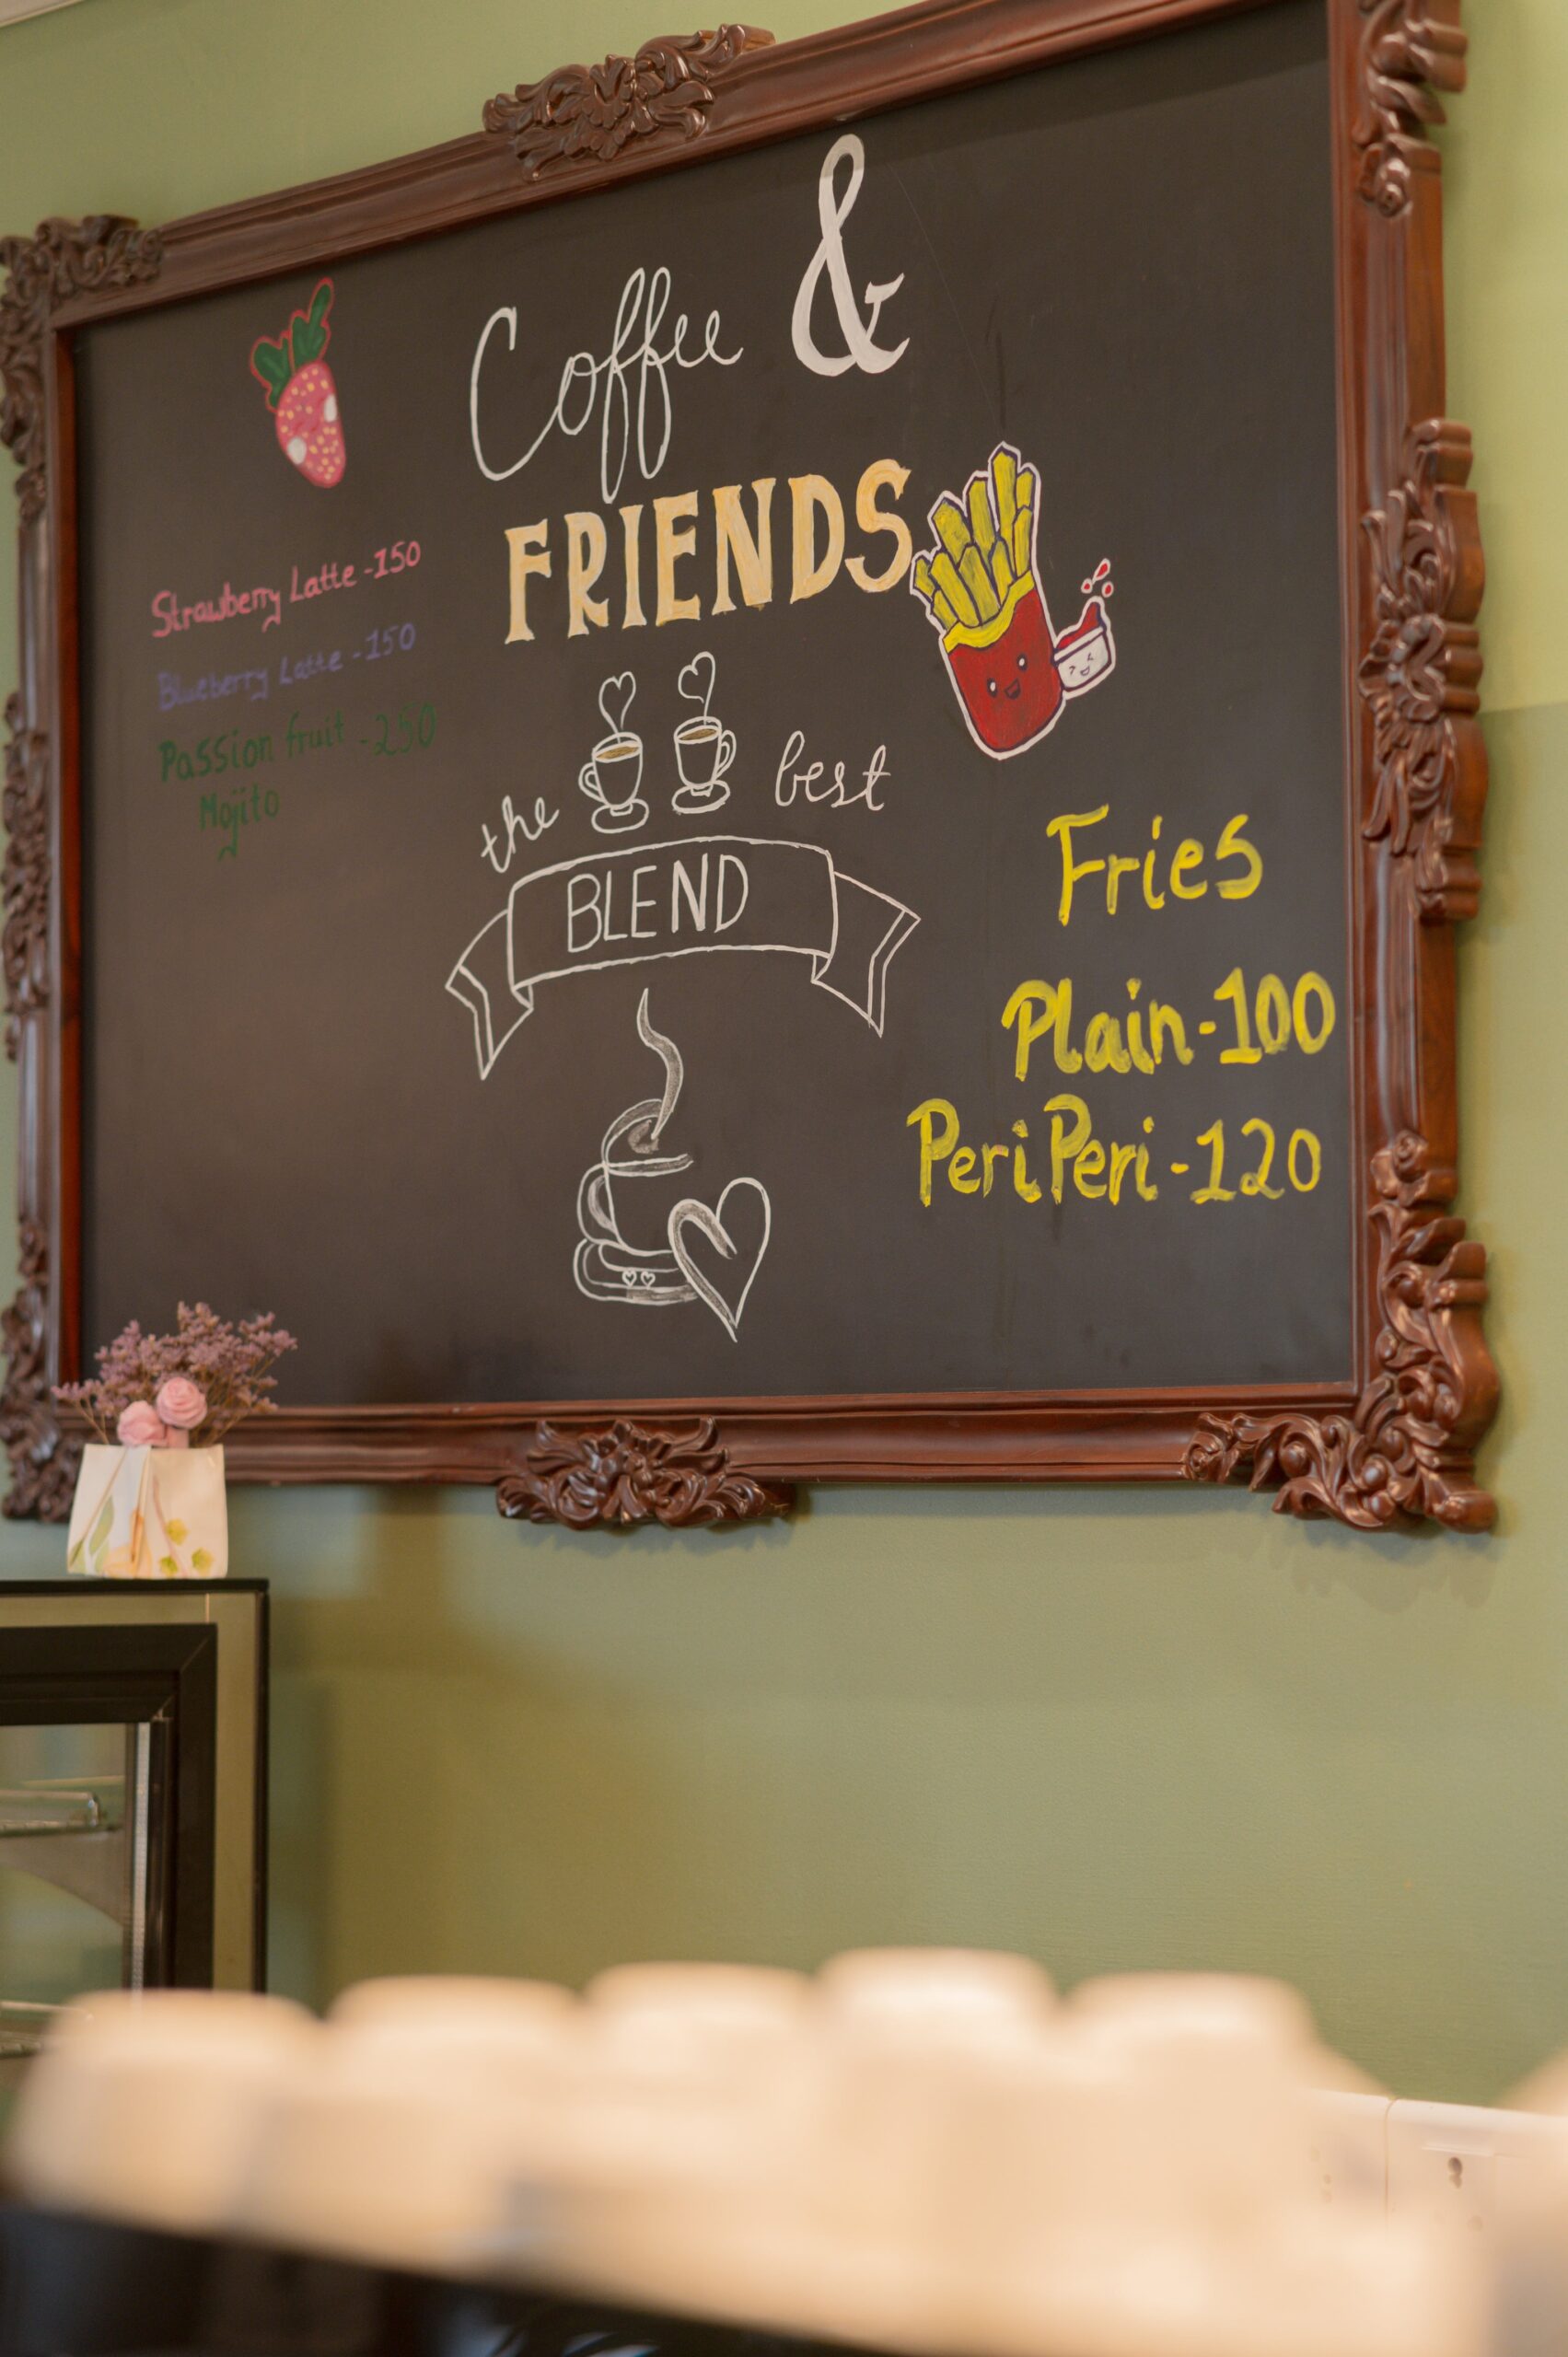 Coffee &
FRIENDS
the best
BLEND
Strawberry Latte -150
Blueberry Latte -150
Passion fruit -250
Mojito
Fries
Plain-100
Peri Peri-120